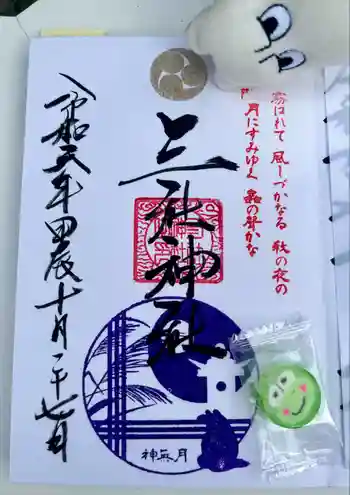 霧はれて 風しづかなる 秋の夜の
月にすみゆく 蟲の聲かな
三社神社
神無月
令和六年甲辰十月二十七日